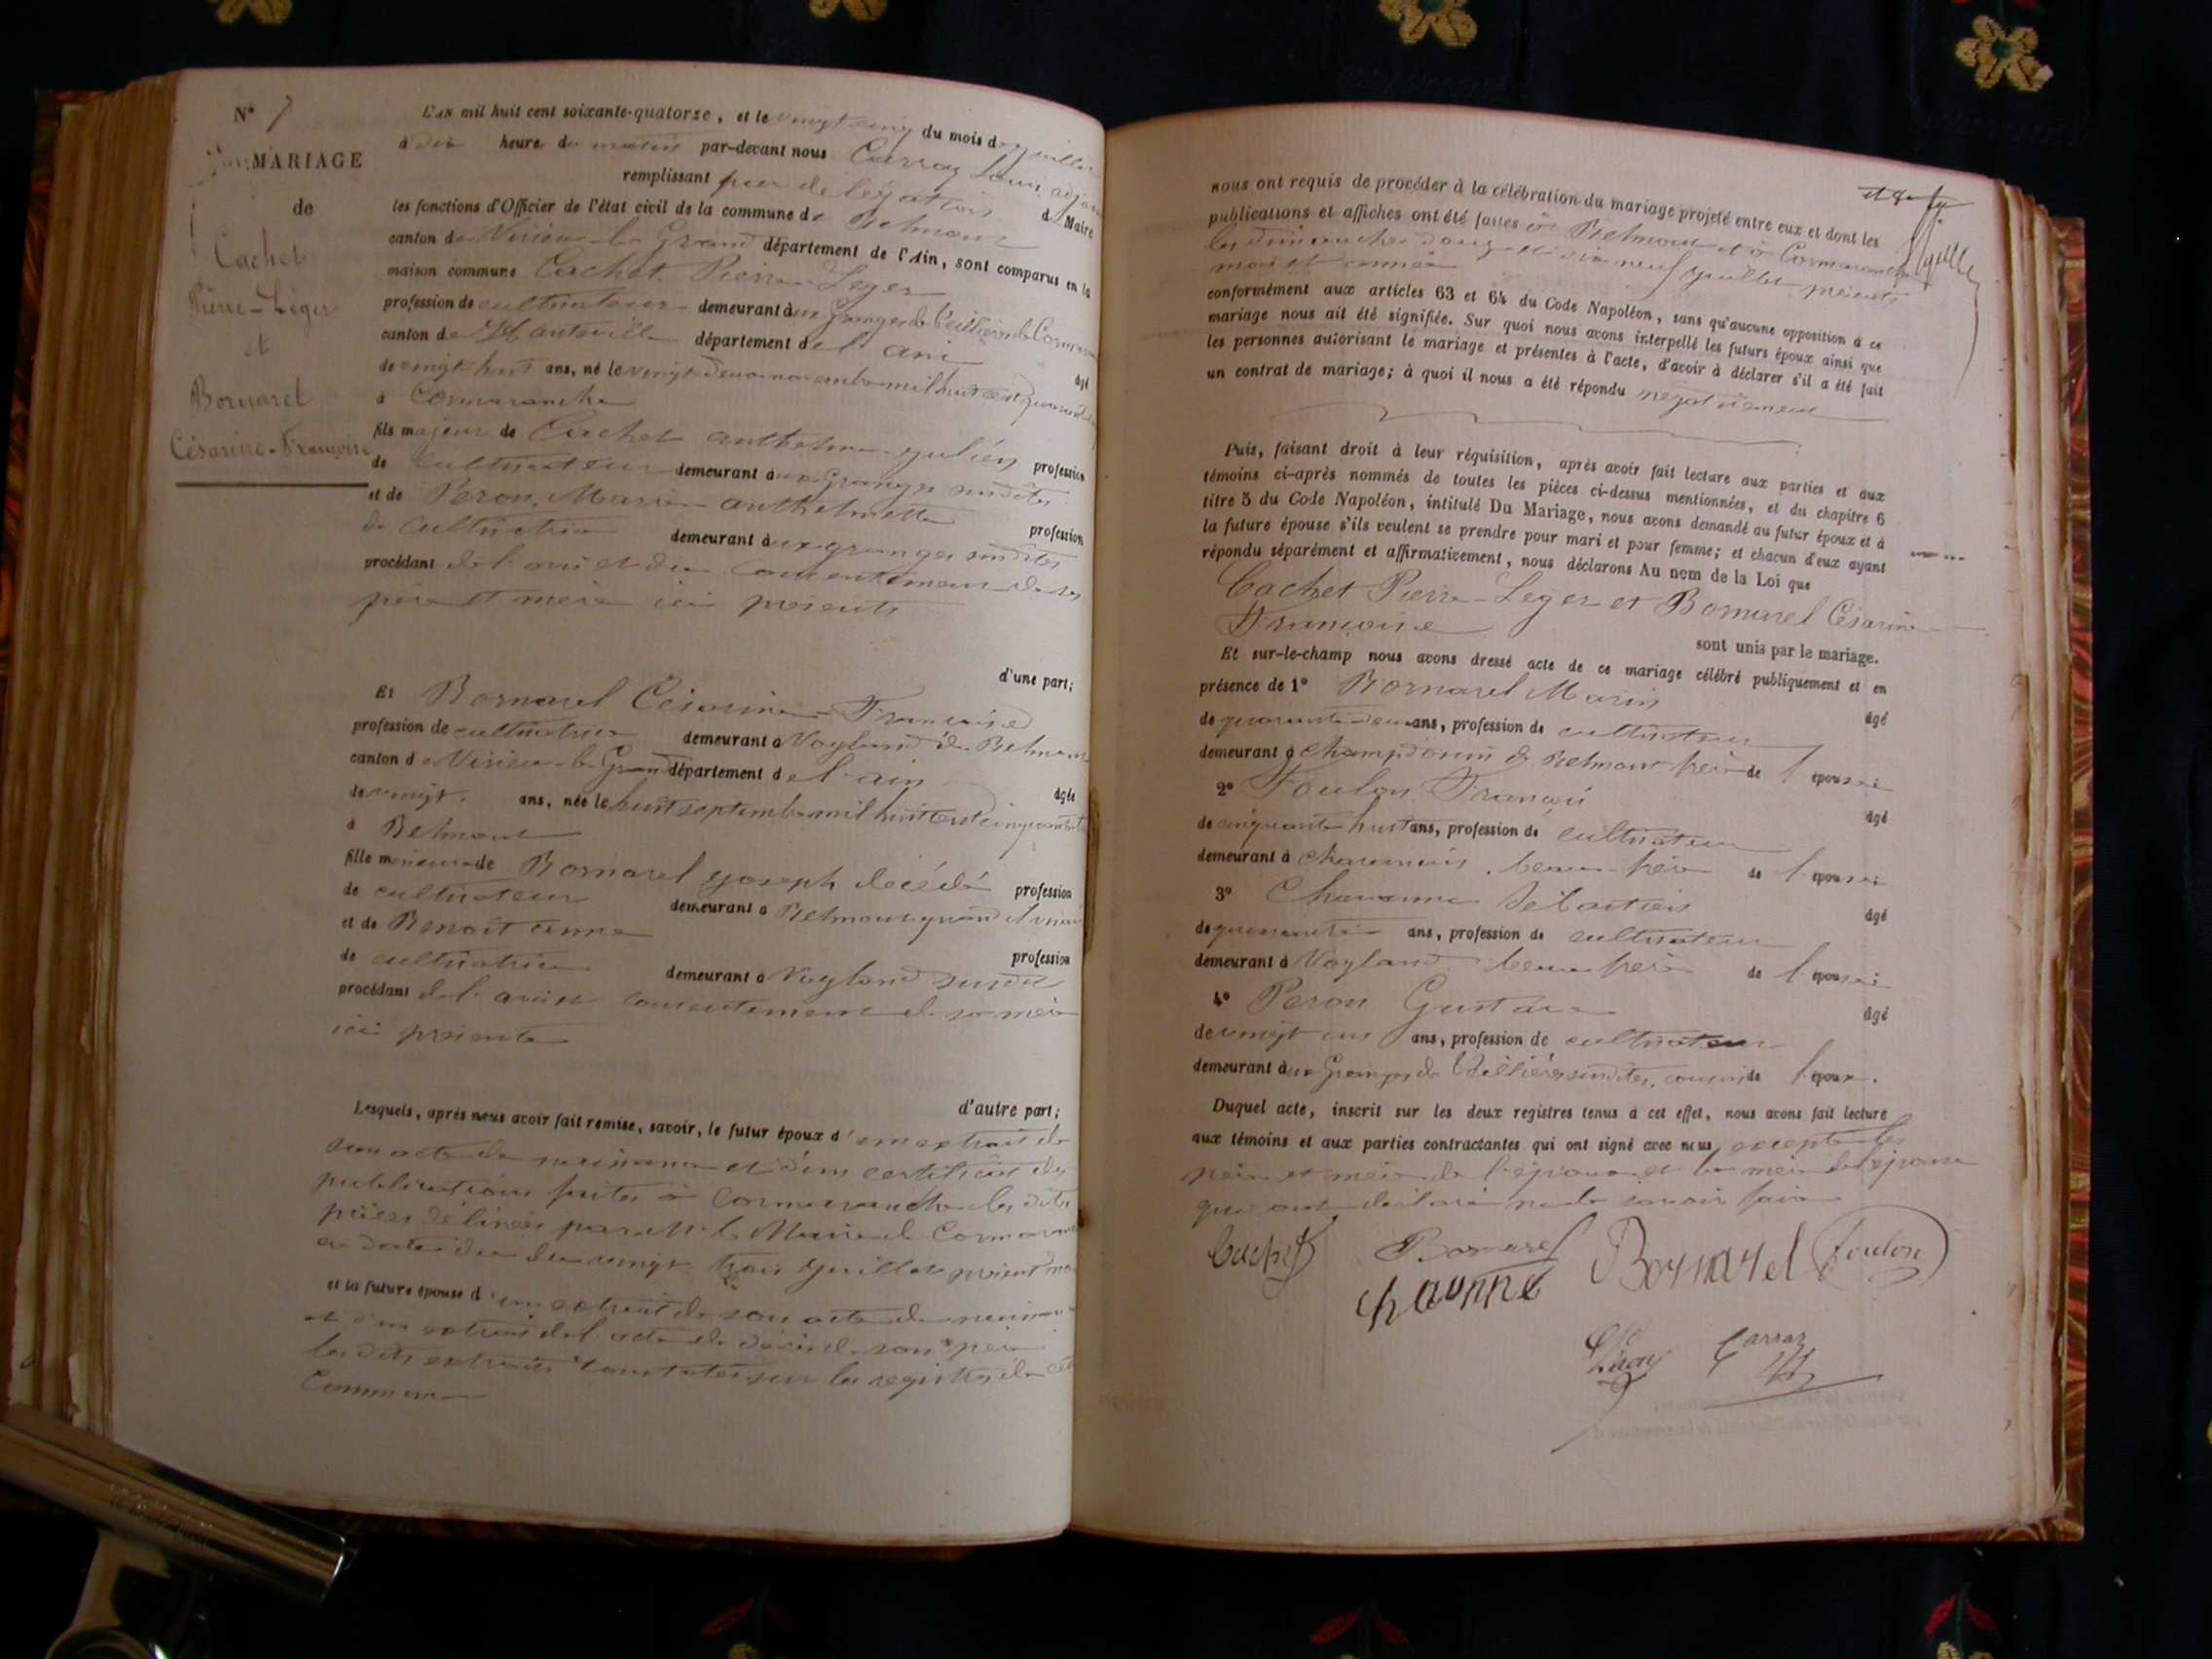 N° 7
MARIAGE
de
Cachet
Pierre-Léger
et
Bornarel
Césarine-Françoise
L'AN mil huit cent soixante-quatorze, et le vingt cinq du mois de juillet
à dix heure du matin par-devant nous Carraz Louis, adjoint
remplissant par délégation d Maire
les fonctions d'Officier de l'état civil de la commune de Belmont
canton de Virieu-le-Grand département de l'Ain, sont comparus en la
maison commune Cachet Pierre-Leger
profession de cultivateur demeurant aux Granges de
canton de Hauteville département de l'ain âgé
de vingt huit ans, né le vingt deux novembre mil huit cent quarante
à Cormaranche
fils majeur de Cachet anthelme-julien profession
de cultivateur demeurant aux Granges susdites
et de Peron, Marie-anthelmette profession
de cultivatrice demeurant aux granges susdites
procédant de l'avis et du consentement de ses
père et mère ici présents
d'une part;
Et Bornarel Césarine-Françoise
profession de cultivatrice demeurant à Vogland de Belmont
canton de Virieu-le-Grand département de l'ain âgée
de vingt ans, née le huit septembre mil huit cent cinquante
à Belmont
fille mineure de Bornarel joseph décédé profession
de cultivateur demeurant à Belmont quand il vivait
et de Benoit anne profession
de cultivatrice demeurant à Vogland susdit
procédant de l'avis et consentement de sa mère
ici présente
d'autre part;
Lesquels, après nous avoir fait remise, savoir, le futur époux d'un extrait de
son acte de naissance et d'un certificat des
publications faites à Cormaranche les dites
pièces délivrées par Mr le Maire de Cormaranche
en date du vingt trois juillet présent mois
et la future épouse d'un extrait de son acte de naissance
et d'un extrait de l'acte de décès de son père
les dits extraits constatés sur les registres de cette
commune
nous ont requis de procéder à la célébration du mariage projeté entre eux et dont les
publications et affiches ont été faites à Belmont et à Cormaranche
les dimanches douze et dix neuf juillet présents
mois et année
conformément aux articles 63 et 64 du Code Napoléon, sans qu'aucune opposition à ce
mariage nous ait été signifiée. Sur quoi nous avons interpellé les futurs époux ainsi que
les personnes autorisant le mariage et présentes à l'acte, d'avoir à déclarer s'il a été fait
un contrat de mariage; à quoi il nous a été répondu négativement
Puis, faisant droit à leur réquisition, après avoir fait lecture aux parties et aux
témoins ci-après nommés de toutes les pièces ci-dessus mentionnées, et du chapitre 6
titre 5 du Code Napoléon, intitulé Du Mariage, nous avons demandé au futur époux et à
la future épouse s'ils veulent se prendre pour mari et pour femme; et chacun d'eux ayant
répondu séparément et affirmativement, nous déclarons Au nom de la Loi que
Cachet Pierre-Leger et Bornarel Césarine
Françoise
sont unis par le mariage.
Et sur-le-champ nous avons dressé acte de ce mariage célébré publiquement et en
présence de 1° Bornarel Marin âgé
de quarante deux ans, profession de cultivateur
demeurant à de Belmont frère de l'épouse;
2° Foulon François âgé
de cinquante huit ans, profession de cultivateur
demeurant à beau-frère de l'épouse;
3° Chavanne Sébastien âgé
de quarante ans, profession de cultivateur
demeurant à Vogland beau frère de l'épouse;
4° Peron Gustave âgé
de vingt un ans, profession de cultivateur
demeurant aux Granges de susdites, cousin de l'époux.
Duquel acte, inscrit sur les deux registres tenus à cet effet, nous avons fait lecture
aux témoins et aux parties contractantes qui ont signé avec nous, excepté les
père et mère de l'époux et la mère de l'épouse
qui ont déclaré ne le savoir faire
Cachet Bornarel Bornarel Foulon
chavanne
Peron Carraz